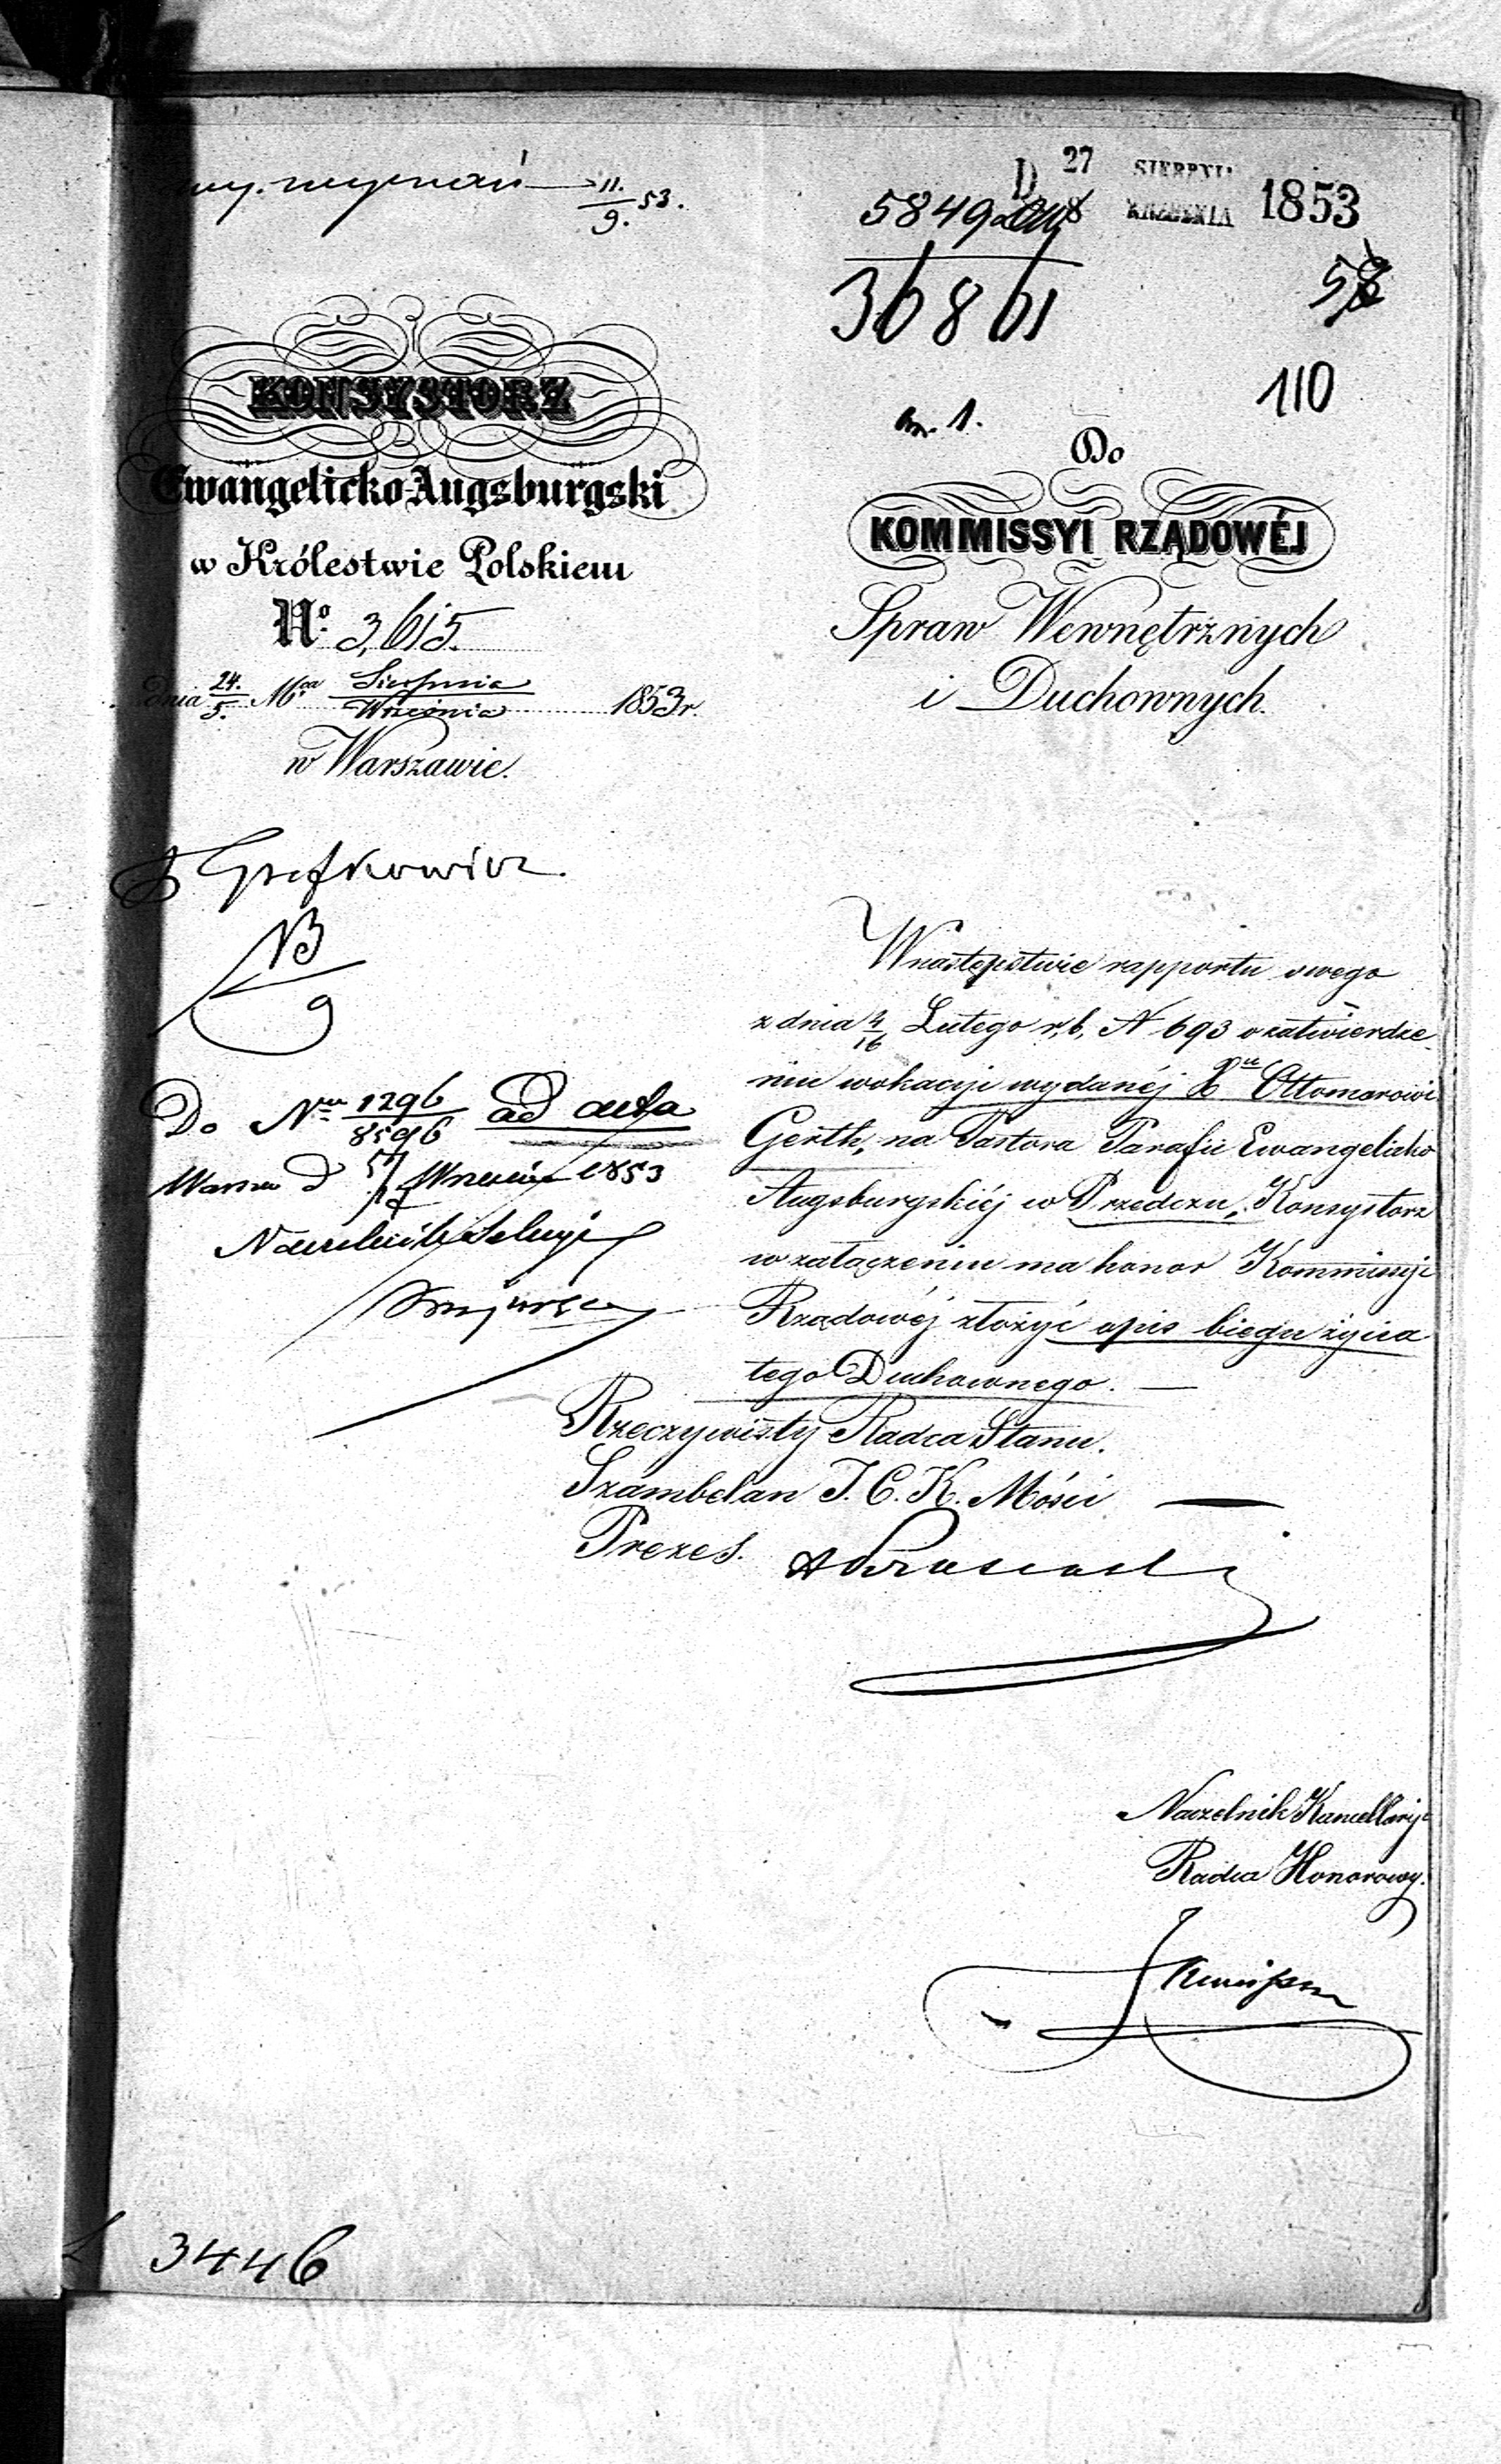 11./9. 53.
D 27 SIERPNIA 1853
8 WRZEŚNIA
5849
36861
110
1.
KONSYSTORZ
Ewangelicko-Augsburgski
w Królestwie Polskiem
No. 3,615.
Dnia 24./5. Mca Sierpnia/Września 1853 r.
w Warszawie.
Do
KOMMISSYI RZĄDOWÉJ
Spraw Wewnętrznych
i Duchownych.
NB
9
Do Nru 1296/8596 ad acta
1853
W następstwie rapportu swego
z dnia 4/16 Lutego r. b. N 693 o zatwierdze-
niu wokacyi wydanéj Xu Ottomarowi
Gerth, na Pastora Parafii Ewangelicko
Augsburgskiéj w Przedczu, Konsystorz
w załączeniu ma honor Kommissyi
Rządowéj złożyć opis biegu życia
tego Duchownego. —
Rzeczywisty Radca Stanu.
Szambelan J. C. K. Mości
Prezes.
Naczelnik Kancellaryi
Radca Honorowy.
3446